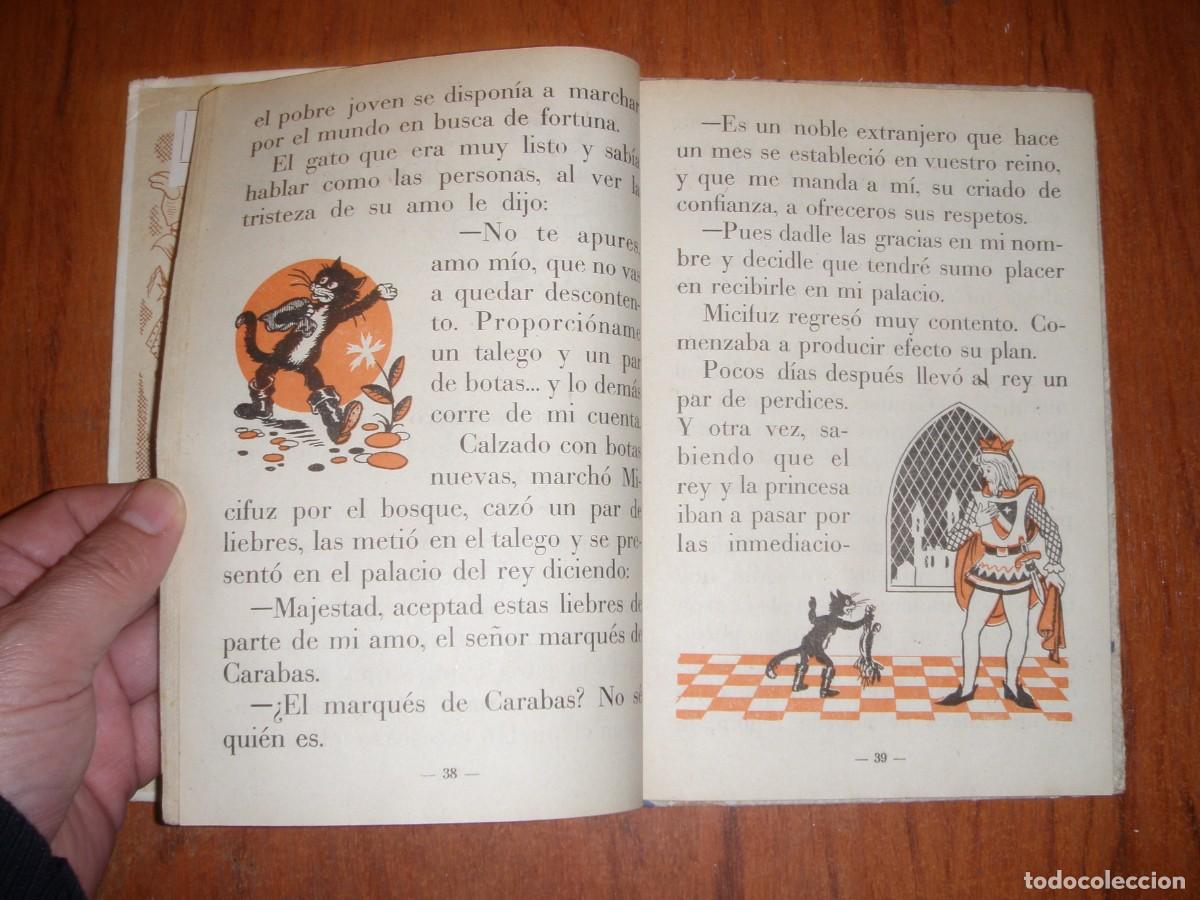 el pobre joven se disponía a marchar
por el mundo en busca de fortuna.
El gato que era muy listo y sabía
hablar como las personas, al ver la
tristeza de su amo le dijo:
—No te apures,
amo mío, que no vas
a quedar desconten-
to. Proporcióname
un talego y un par
de botas... y lo demás
corre de mi cuenta.
Calzado con botas
nuevas, marchó Mi-
cifuz por el bosque, cazó un par de
liebres, las metió en el talego y se pre-
sentó en el palacio del rey diciendo:
—Majestad, aceptad estas liebres de
parte de mi amo, el señor marqués de
Carabas.
—¿El marqués de Carabas? No sé
quién es.
— 38 —
—Es un noble extranjero que hace
un mes se estableció en vuestro reino,
y que me manda a mí, su criado de
confianza, a ofreceros sus respetos.
—Pues dadle las gracias en mi nom-
bre y decidle que tendré sumo placer
en recibirle en mi palacio.
Micifuz regresó muy contento. Co-
menzaba a producir efecto su plan.
Pocos días después llevó al rey un
par de perdices.
Y otra vez, sa-
biendo que el
rey y la princesa
iban a pasar por
las inmediacio-
— 39 —
todocoleccion